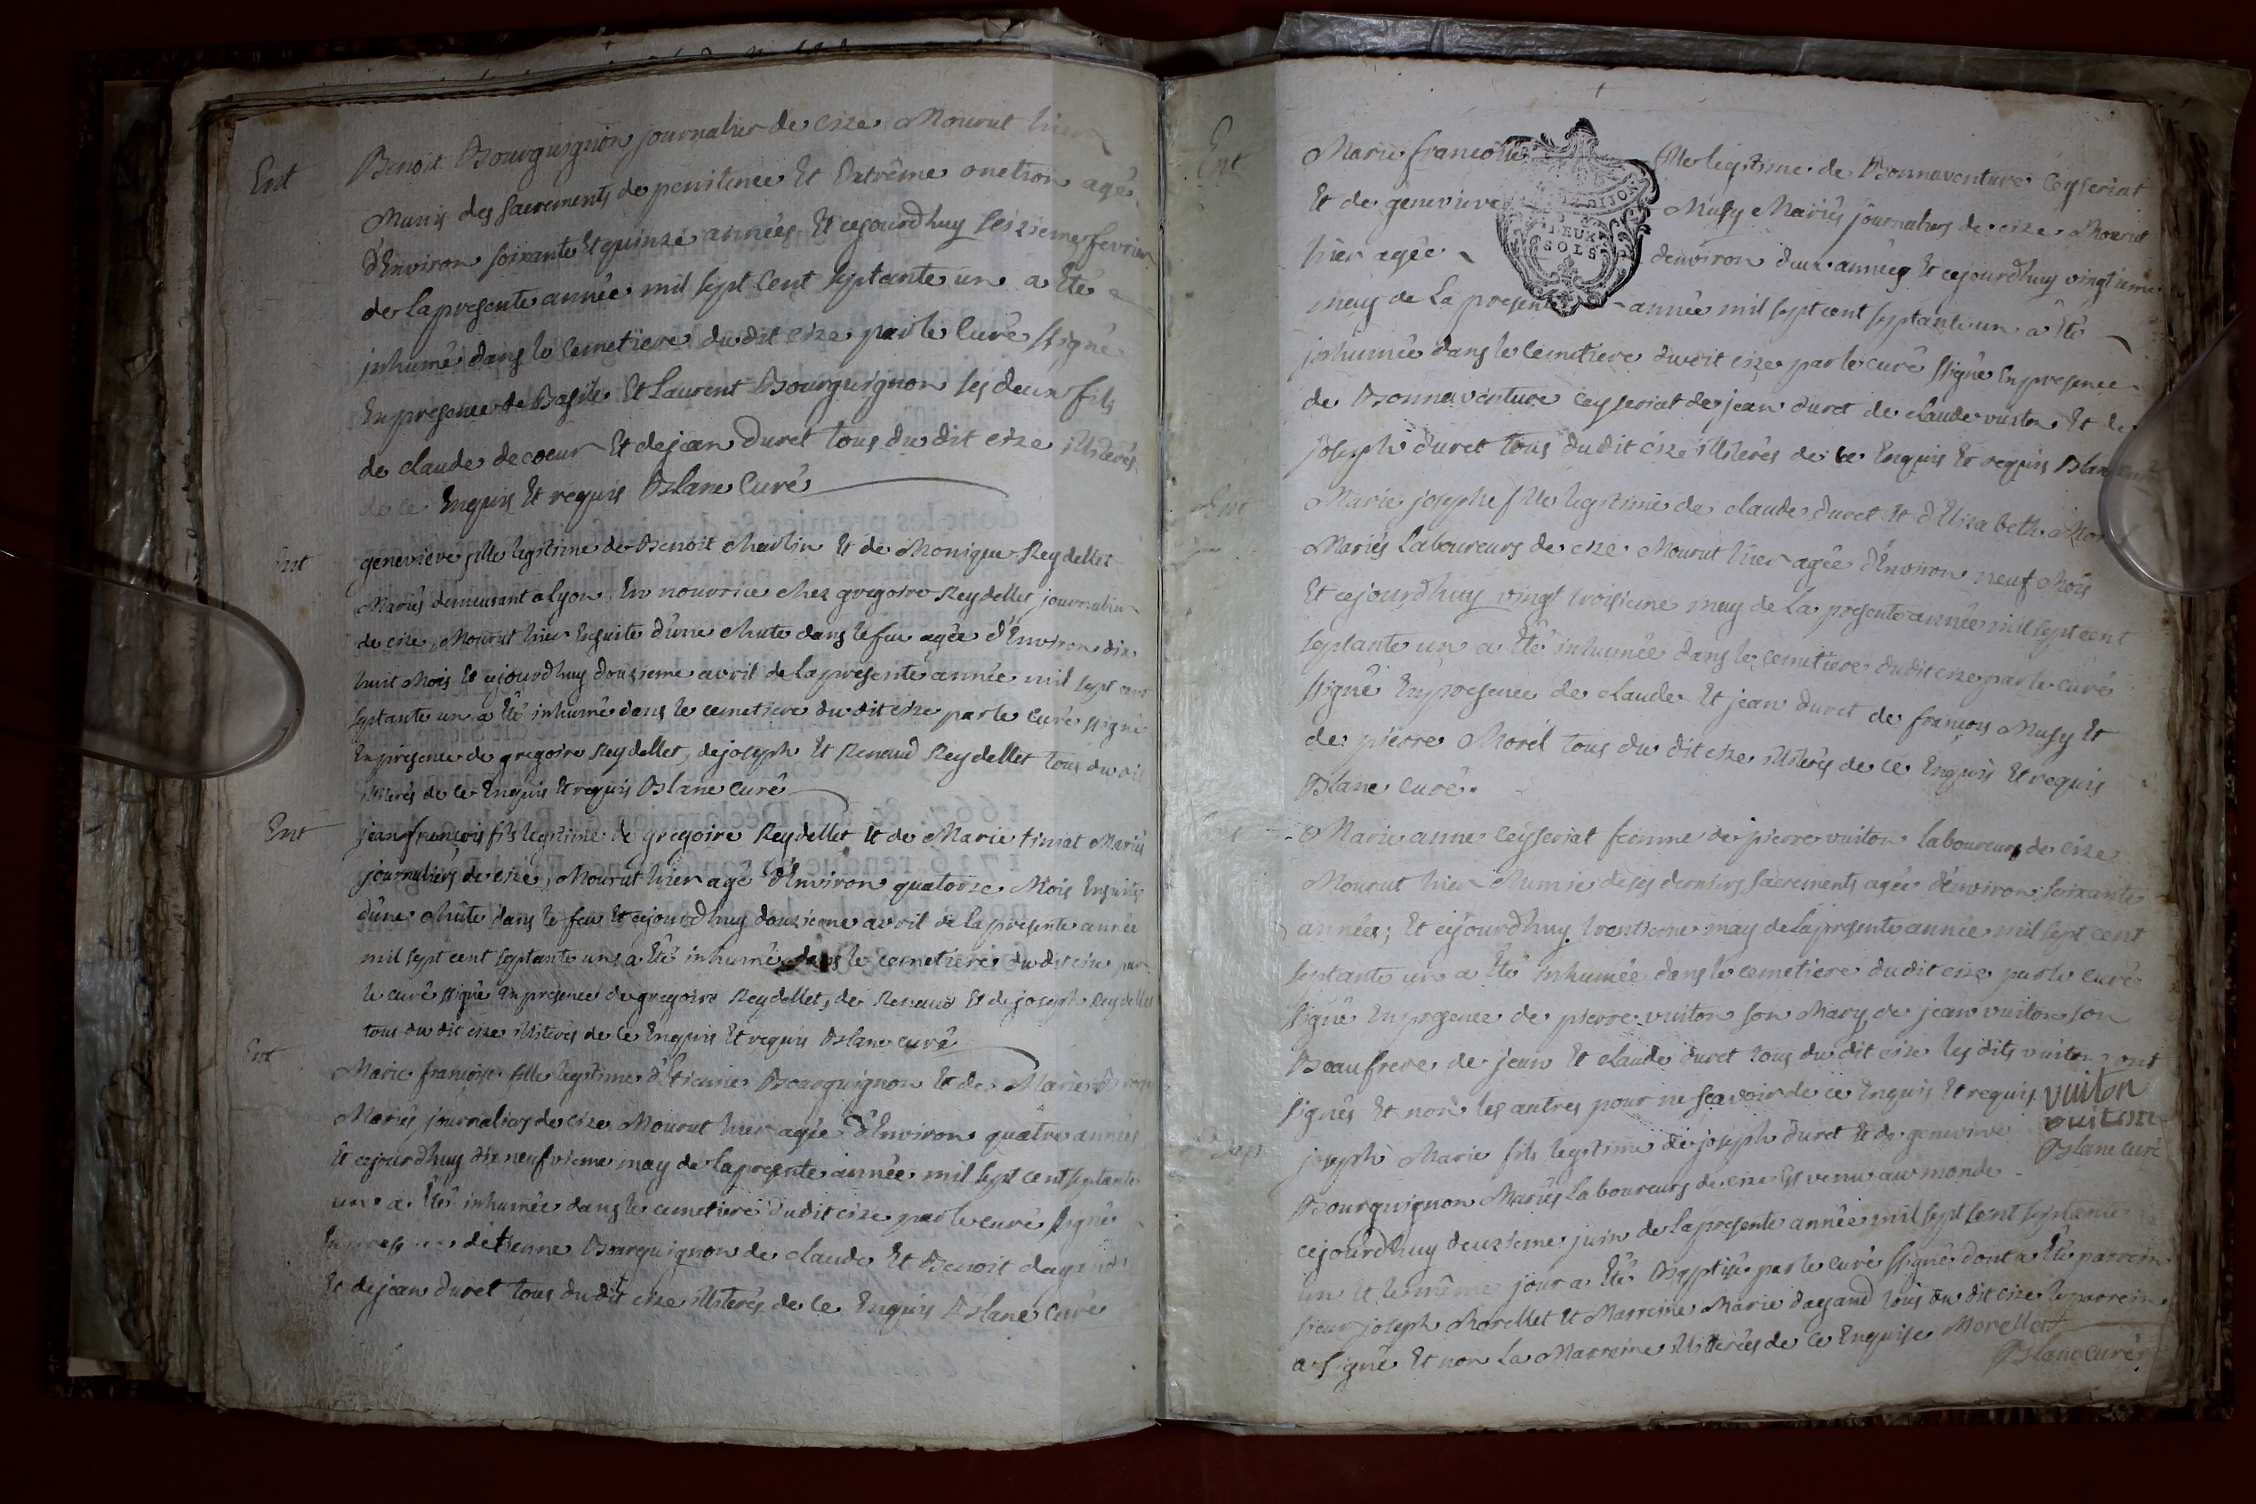 Ent
Benoit Bourguignon journalier de cize Mourut hier
Munis des sacrements de penitence Et Extrême onction agé
d'Environ soixante Et quinze années Et cejourdhuy seizieme fevrier
de la presente année mil sept Cent septante un a Eté
inhumé dans le Cemetiere du dit cize par le Curé ssigné
En presence de Basile Et Laurent Bourguignon ses deux fils
de claude decoeur Et de jean duret tous du dit cize illiterés
de ce Enquis Et requis Blanc Curé
Ent
genevieve fille legitime de Benoit Charlin Et de Monique Reydellet
Mariés demeurant a Lyon En nourrice chez gregoire Reydellet journalier
de cize, Mourut hier Ensuite d'une chute dans le feu agée d'Environ dix
huit Mois Et cejourdhuy douzieme avril de la presente année mil sept cent
septante un a Eté inhumé dans le cemetiere du dit cize par le Curé ssigné
En presence de gregoire Reydellet, de joseph Et Renaud Reydellet tous du dit
illiterés de ce Enquis Et requis Blanc curé
Ent
jean françois fils legitime de gregoire Reydellet Et de Marie timat Mariés
journaliers de cize, Mourut hier agé d'Environ quatorze Mois Ensuite
d'une chûte dans le feu Et cejourdhuy douzieme avril de la presente année
mil sept cent septante un a Eté inhumé dans le cemetiere du dit cize par
le curé ssigné En presence de gregoire Reydellet, de Renaud Et de joseph Reydellet
tous du dit cize illiterés de ce Enquis Et requis Blanc curé
Ent
Marie françoise fille legitime d'Etienne Bourguignon Et de Marie
Mariés journaliers de cize Mourut hier agée d'Environ quatre années
Et cejourdhuy dix neufvieme may de la presente année mil sept cent septante
un a Eté inhumée dans le cemetiere du dit cize par le curé ssigné
En presence d'etienne Bourguignon de claude Et Benoit dagand
Et de jean duret tous du dit cize illiterés de ce Enquis Blanc Curé
Ent
Marie francoise fille legitime de Bonnaventure Ceyseriat
Et de genevieve Musy Mariés journaliers de cize Mourut
hier agée d'environ deux années Et cejourdhuy vingtieme
may de La presente année mil sept cent septante un a Eté
DIJON
DEUX
SOLS
inhumée dans le Cemetiere du dit cize par le curé ssigné En presence
de Bonnaventure Ceyseriat de jean duret de claude vuiton Et de
joseph duret tous du dit cize illiterés de ce Enquis Et requis Blanc curé
Ent
Marie josephe fille legitime de claude duret Et d'Elizabeth
Mariés Laboureurs de cize Mourut hier agée d'Environ neuf Mois
Et cejourdhuy vingt troisieme may de La presente année mil sept cent
septante un a Eté inhumée dans le cemetiere du dit cize par le curé
ssigné En presence de claude Et jean duret de françois Musy Et
de pierre Morel tous du dit cize illiterés de ce Enquis Et requis
Blanc curé.
Ent
Marie anne Ceyseriat femme de pierre vuiton Laboureur de cize
Mourut hier Munie de ses derniers sacrements agée d'environ soixante
années; Et cejourdhuy trentieme may de la presente année mil sept cent
septante un a Eté inhumée dans le cemetiere du dit cize par le curé
ssigné En presence de pierre vuiton son Mary de jean vuiton son
Beaufrere de jean Et claude duret tous du dit cize les dits vuiton ont
signés Et non les autres pour ne sçavoir de ce Enquis Et requis vuiton
vuiton
Blanc curé
Bap
joseph Marie fils legitime de joseph duret Et de genevieve
Bourguignon Mariés Laboureurs de cize Est venu au monde
cejourdhuy deuxieme juin de la presente année mil sept Cent septante
un Et le même jour a Eté Baptisé par le curé ssigné dont a Eté parrein
sieur joseph Morellet Et Marreine Marie dagand tous du dit cize le parrein
a signé Et non La Marreine illiterée de ce Enquise Morellet
Blanc curé